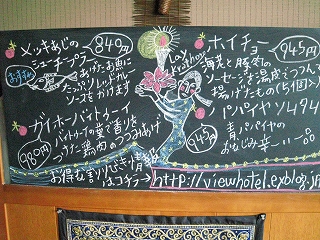 メッキあじの
シューチプフー
840円
おすすめ
あげたお魚に
たっぷりレッドカレー
ソースをかけます
ガイホーバイトゥーイ
バイトゥーイの葉で香りを
つけた鶏肉のつつみあげ
980円
Loy
Krathong
ホイチョ
945円
海老と豚肉の
ソーセージを湯皮でつつんで
揚げたもの(5個)
パパイヤソムタム
945円
青パパイヤの
おなじみ辛~い
お得な割り引き情報
はコチラ→http://viewhotel.exblog.jp